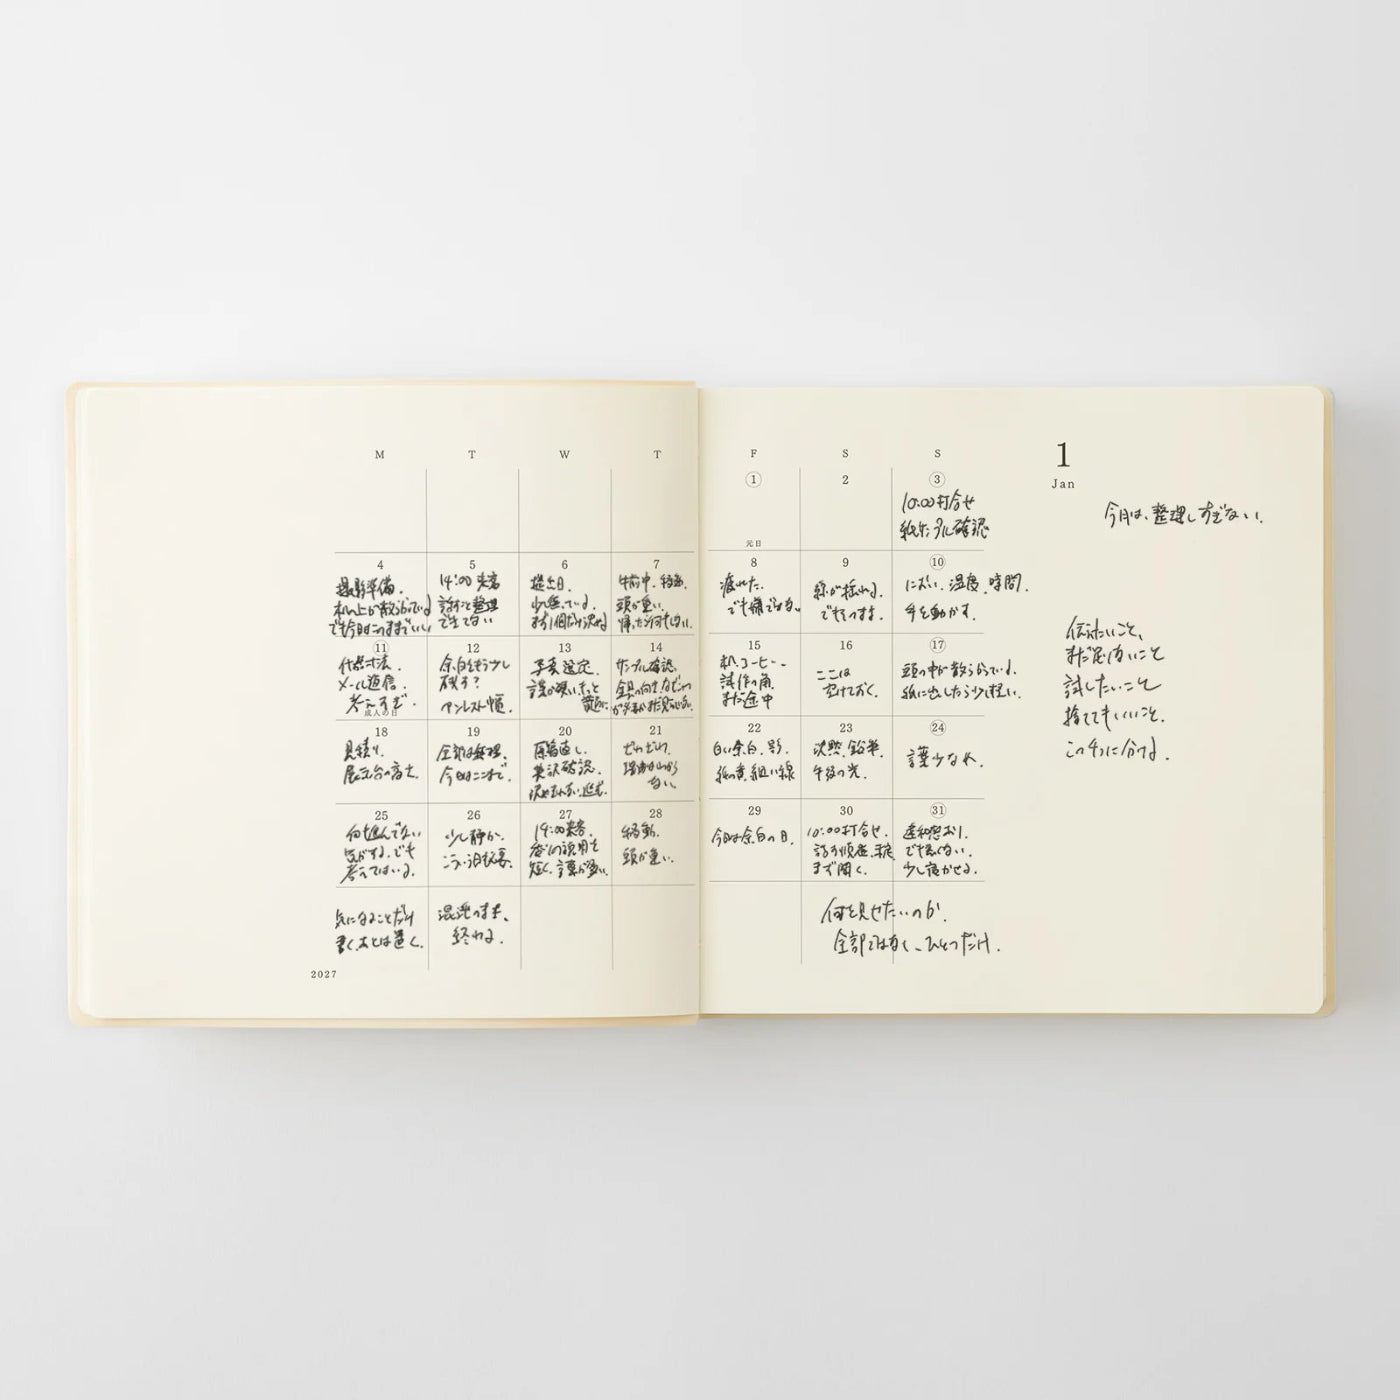 M T W T F S S
1
Jan
今月は、整理しすぎない。
1 2 3
元日
10:00 打合せ
紙サンプル確認
4 5 6 7 8 9 10
撮影準備。
机の上が散らかっている
でも今日はこのままでいい
14:00 来客
話すこと整理
できてない
提出日。
少し焦っている。
まず1個だけ決める
午前中、移動。
頭が重い。
帰ったら何もしない。
疲れた。
でも嫌ではない
線が揺れる。
でもそのまま。
におい、温度、時間。
手を動かす。
11 12 13 14 15 16 17
什器寸法。
メール返信。
考えすぎ。
成人の日
余白をもう少し
残す?
写真選定。
サンプル確認。
机、コーヒー、
試作の角、
まだ途中
ここは
空けておく。
頭の中が散らかっている。
紙に出したら少し軽い。
18 19 20 21 22 23 24
見積り。
展示台の高さ。
全部は無理。
今日はここまで。
原稿直し。
英訳確認。
決めきれない、進む。
ざわざわ。
理由はわから
ない。
白い余白、影、
紙の束、細い線
沈黙、鉛筆、
午後の光。
言葉少なめ。
25 26 27 28 29 30 31
何も進んでない
気がする。でも
考えてはいる。
少し静か。
こういう日も必要。
14:00 来客。
後の説明を
短く。言葉が多い。
移動。
頭が重い。
今日は余白の日。
10:00 打合せ。
まず聞く。
違和感あり。
でも悪くない。
少し寝かせる。
気になることだけ
書く。あとは置く。
混沌のまま、
終わる。
何を見せたいのか。
全部ではなく、ひとつだけ。
伝えたいこと、
まだ足りないこと
試したいこと
捨ててもいいこと。
この4つに分ける。
2027